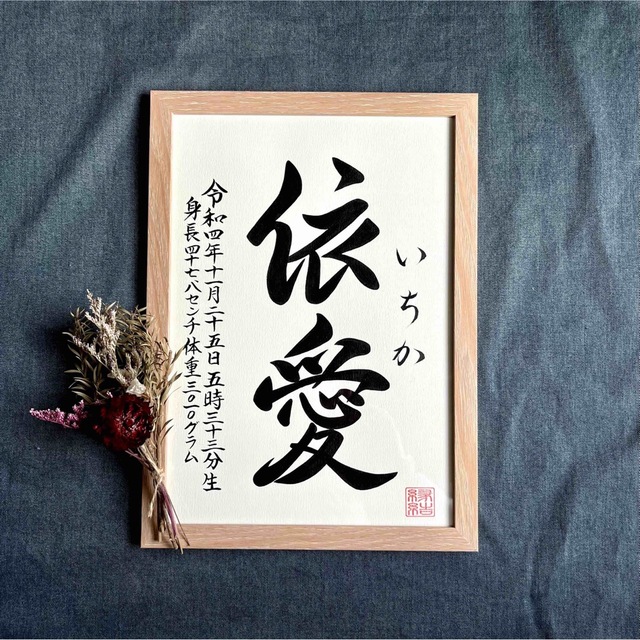 いちか
依愛
令和四年十一月二十五日五時三十三分生
身長四十七八センチ体重三〇一〇グラム
縁結